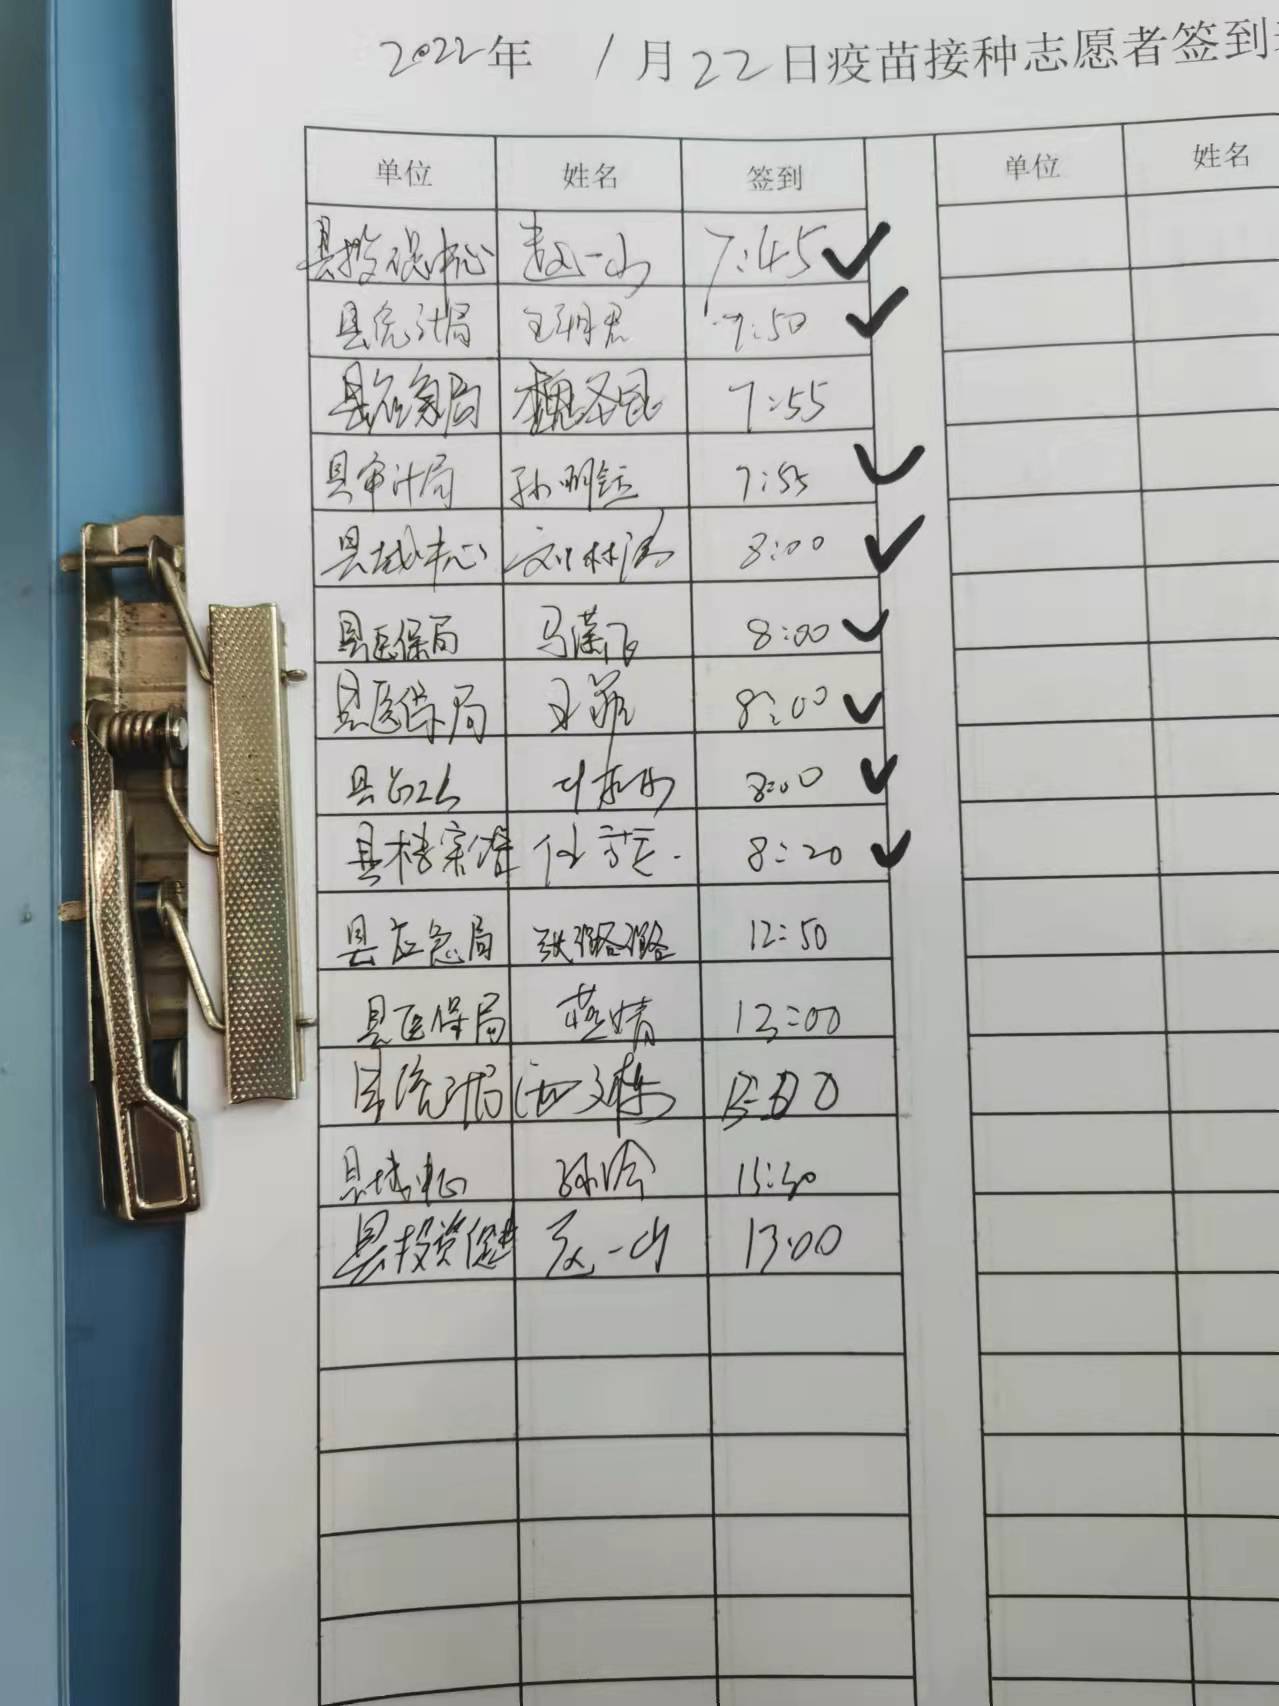 2022年 1月22日疫苗接种志愿者签到
单位 姓名 签到 单位 姓名
县投促中心 赵一山 7:45
县统计局 7:50
县应急局 魏圣昆 7:55
县审计局 孙明钰 7:55
县 中心 刘林涛 8:00
县医保局 马潇飞 8:00
县医保局 8:00
县 8:00
县档案馆 8:20
县应急局 张璐璐 12:50
县医保局 婧 13:00
县统计局 文栋
县 中心 孙 
县投资促进 赵一山 13:00